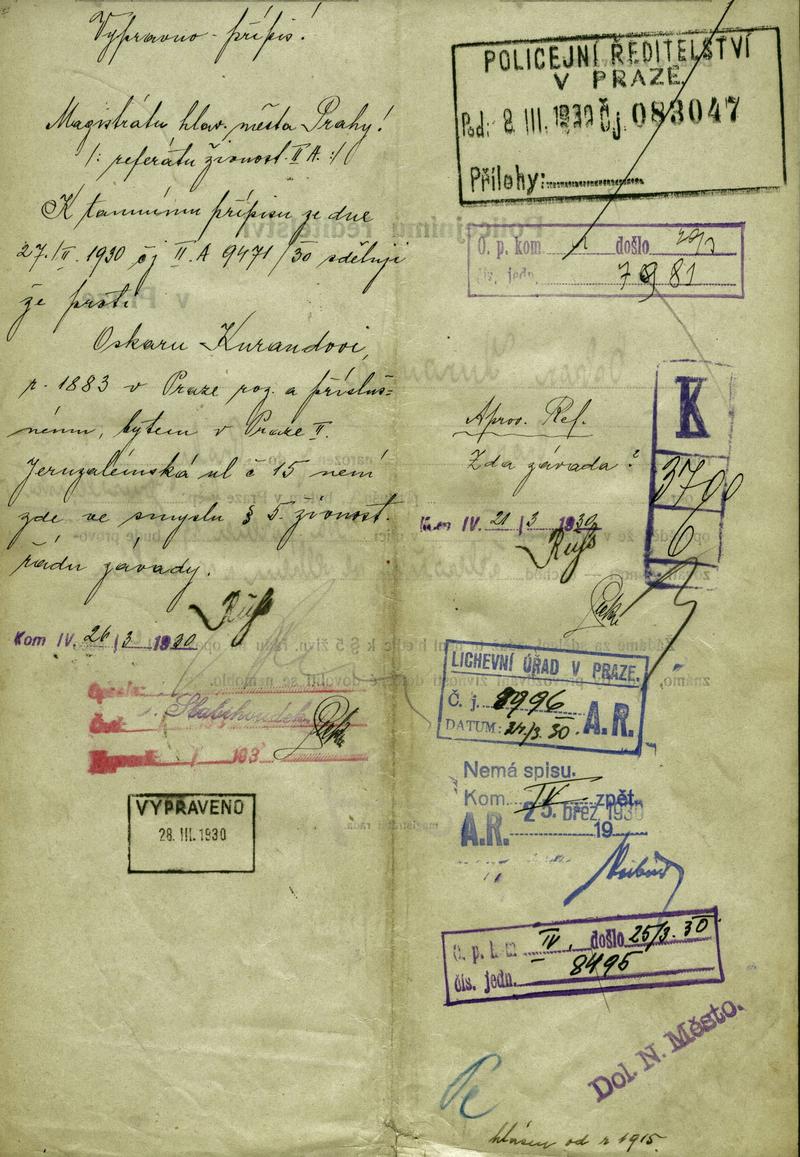 Vypravno - přípis!
Magistrátu hlav. města Prahy!
/: referátu živnost. II A. :/
K tamnímu přípisu ze dne
27./II. 1930 čj II. A 9471/30 sděluji
že proti
Oskaru Kurandovi,
r. 1883 v Praze roz. a přísluš=
nému, bytem v Praze II.
Jeruzalémská ul č 15 není
zde ve smyslu § 5. živnost.
řádu závady.
Kom IV. 26/3 1930
193
VYPRAVENO
28. III. 1930
POLICEJNÍ ŘEDITELSTVÍ
V PRAZE
Pod: 8 III. 1930 Čj. 083047
Přílohy:
O. p. kom došlo
čís. jedn. 7981
K
3700
6
Aprov. Ref.
Zda závada?
Kom IV. 21/3 1930
LICHEVNÍ ÚŘAD V PRAZE.
Č. j. 8996
DATUM: 24/3. 30. A.R.
Nemá spisu.
Kom. IV zpět.
A.R. 25. břez 1930
19
O. p. kom IV, došlo 25/3. 30
čís. jedn. 8495
Dol. N. Město.
hlášen od r 1915.